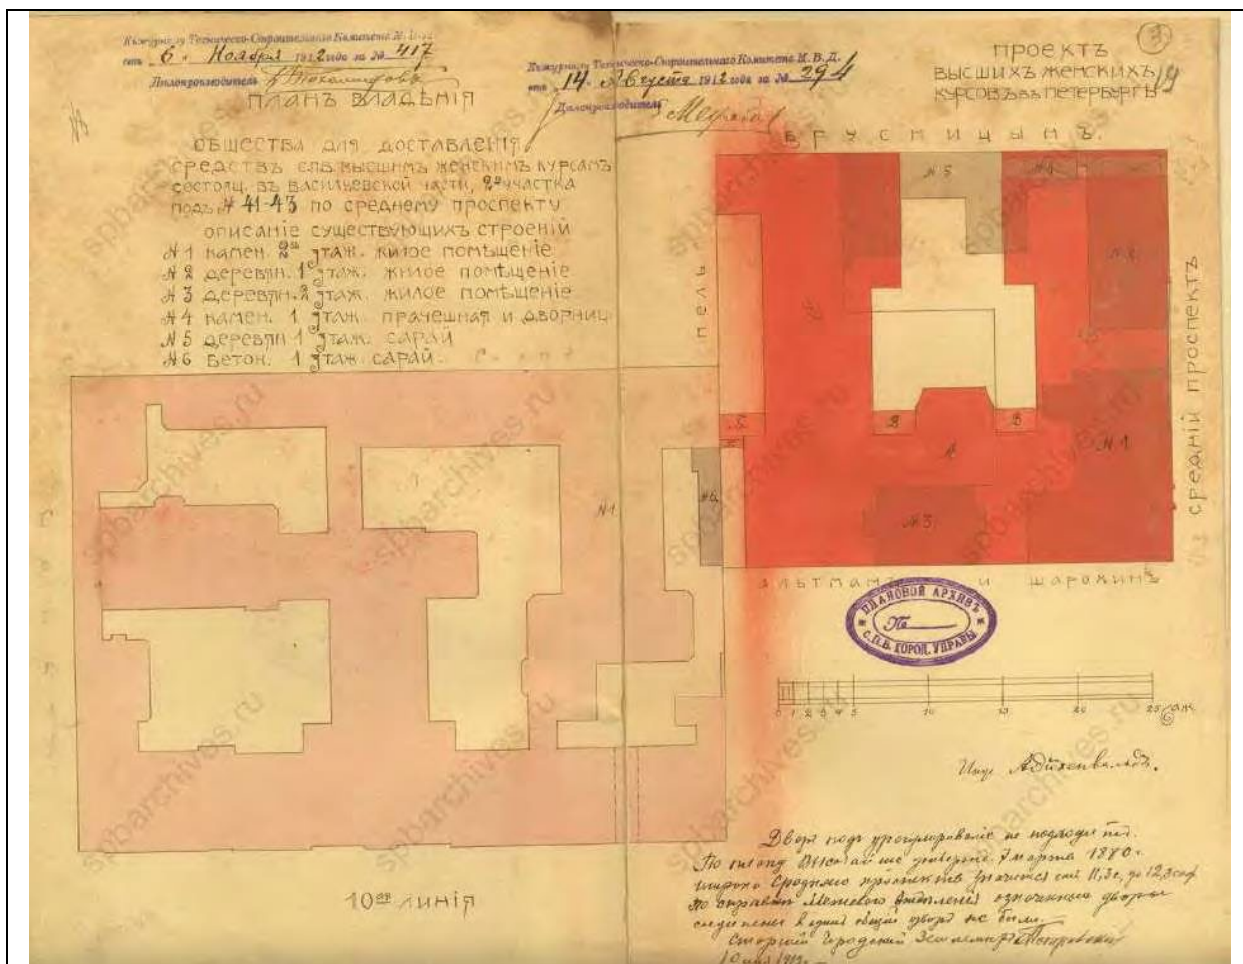 Къ журналу Техническо-Строительнаго Комитета М.В.Д.
отъ 6 Ноября 1912 года за № 417
Дѣлопроизводитель
Къ журналу Техническо-Строительнаго Комитета М.В.Д.
отъ 14 Августа 1912 года за № 294
Дѣлопроизводитель
ПРОЕКТЪ
ВЫСШИХЪ ЖЕНСКИХЪ
КУРСОВЪ ВЪ ПЕТЕРБУРГѢ
ПЛАНЪ ВЛАДѢНІЯ
ОБЩЕСТВА ДЛЯ ДОСТАВЛЕНІЯ
СРЕДСТВЪ СПБ. ВЫСШИМЪ ЖЕНСКИМЪ КУРСАМЪ
СОСТОЯЩ. ВЪ ВАСИЛЬЕВСКОЙ ЧАСТИ, 2го УЧАСТКА
ПОДЪ № 41-43 ПО СРЕДНЕМУ ПРОСПЕКТУ
ОПИСАНІЕ СУЩЕСТВУЮЩИХЪ СТРОЕНІЙ
№ 1 КАМЕН. 2хъ ЭТАЖ. ЖИЛОЕ ПОМѢЩЕНІЕ
№ 2 ДЕРЕВЯН. 1 ЭТАЖ. ЖИЛОЕ ПОМѢЩЕНІЕ
№ 3 ДЕРЕВЯН. 2 ЭТАЖ. ЖИЛОЕ ПОМѢЩЕНІЕ
№ 4 КАМЕН. 1 ЭТАЖ. ПРАЧЕШНАЯ И ДВОРНИЦ.
№ 5 ДЕРЕВЯН 1 ЭТАЖ. САРАЙ
№ 6 БЕТОН. 1 ЭТАЖ. САРАЙ.
БРУСНИЦЫНЪ.
№ 5
№ 4
№ 2
ПЕЛЬ
СРЕДНІЙ ПРОСПЕКТЪ
В
А
В
№ 1
№ 3
№ 6
№ 1
АЛЬТМАНЪ И ШАРОХИНЪ
ПЛАНОВОЙ АРХИВЪ
№
С.П.Б. ГОРОД. УПРАВЫ
0 1 2 3 4 5 10 15 20 25 САЖ
Дворъ подъ урегулированіе не подходитъ.
По плану Высочайше утвержд. 7 марта 1880 г.
ширина Средняго проспекта значится отъ 11,3 с. до 12,8 саж
По справкѣ Межевого Отдѣленія означенные дворы
соединены въ одинъ общій дворъ не были.
Старшій Городской Землемѣръ
10ая ЛИНІЯ
spbarchives.ru